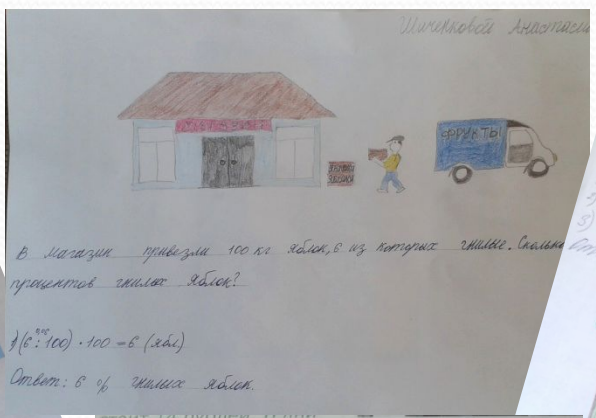 Шиченковой Анастасии
ФРУКТЫ
В магазин привезли 100 кг яблок, 6 из которых гнилые. Сколько
процентов гнилых яблок?
0,06
1) (6 : 100) · 100 = 6 (ябл)
Ответ: 6 % гнилых яблок.
3)